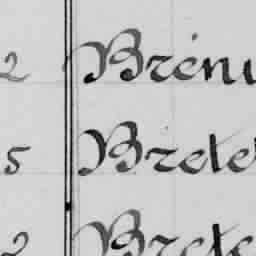 2 Bréni
5 Bretet
2 Brete